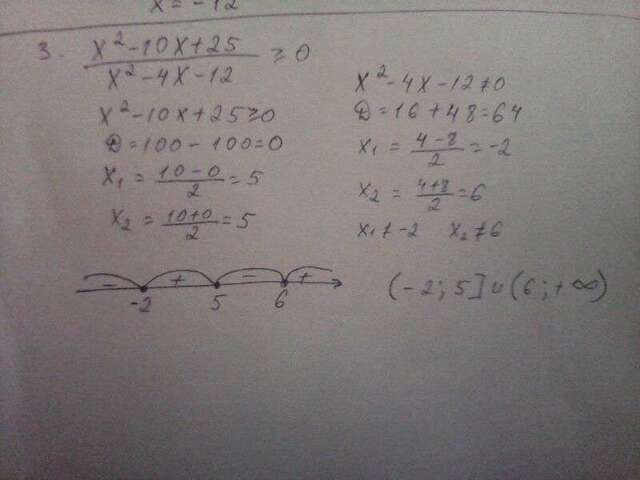 x = -12
3. (x² - 10x + 25)/(x² - 4x - 12) ≥ 0
x² - 10x + 25 ≥ 0
D = 100 - 100 = 0
x₁ = (10 - 0)/2 = 5
x₂ = (10 + 0)/2 = 5
x² - 4x - 12 ≠ 0
D = 16 + 48 = 64
x₁ = (4 - 8)/2 = -2
x₂ = (4 + 8)/2 = 6
x₁ ≠ -2 x₂ ≠ 6
- + - +
-2 5 6
(-2; 5] ∪ (6; +∞)